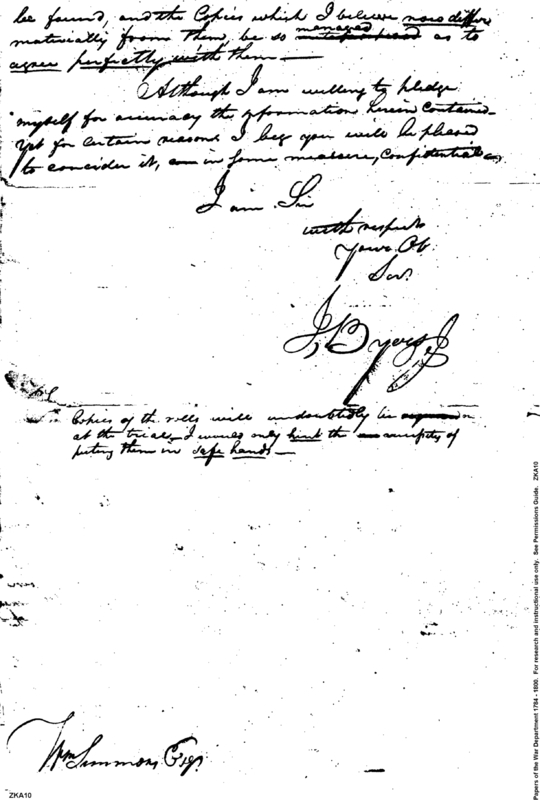 be found, and the Copies which I believe now differ
materially from them, be so managed as to
agree perfectly with them —
Although I am willing to pledge
myself for accuracy the information herein contained
yet for certain reasons I beg you will be pleased
to concider it, in some measure, Confidential
I am Sir
with respects
your Ob
Ser.
J, Byers J
Copies of the rolls will undoubtedly be
at the trial, I would only hint the necessity of
puting them in safe hands —
Wm Simmons Esqr.
ZKA10
Papers of the War Department 1784 - 1800. For research and instructional use only. See Permissions Guide. ZKA10